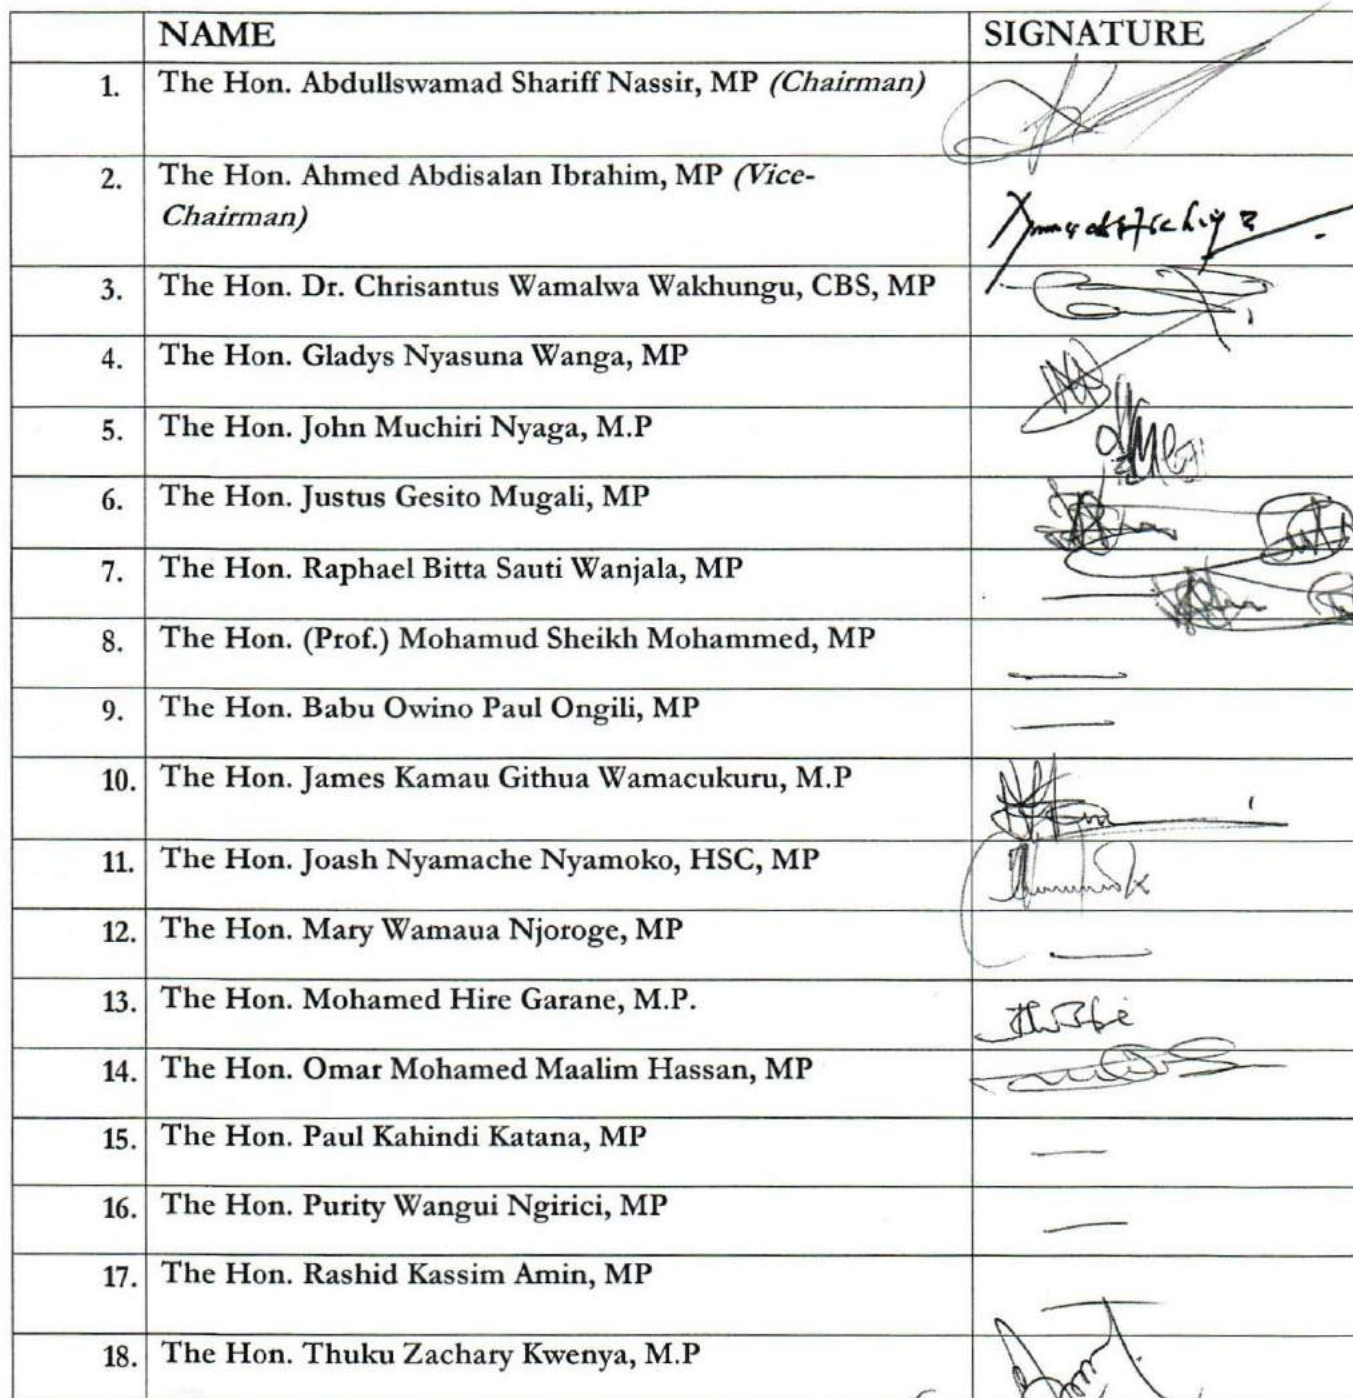 NAME SIGNATURE
1. The Hon. Abdullswamad Shariff Nassir, MP (Chairman)
2. The Hon. Ahmed Abdisalan Ibrahim, MP (Vice-
Chairman)
3. The Hon. Dr. Chrisantus Wamalwa Wakhungu, CBS, MP
4. The Hon. Gladys Nyasuna Wanga, MP
5. The Hon. John Muchiri Nyaga, M.P
6. The Hon. Justus Gesito Mugali, MP
7. The Hon. Raphael Bitta Sauti Wanjala, MP
8. The Hon. (Prof.) Mohamud Sheikh Mohammed, MP
9. The Hon. Babu Owino Paul Ongili, MP
10. The Hon. James Kamau Githua Wamacukuru, M.P
11. The Hon. Joash Nyamache Nyamoko, HSC, MP
12. The Hon. Mary Wamaua Njoroge, MP
13. The Hon. Mohamed Hire Garane, M.P.
14. The Hon. Omar Mohamed Maalim Hassan, MP
15. The Hon. Paul Kahindi Katana, MP
16. The Hon. Purity Wangui Ngirici, MP
17. The Hon. Rashid Kassim Amin, MP
18. The Hon. Thuku Zachary Kwenya, M.P